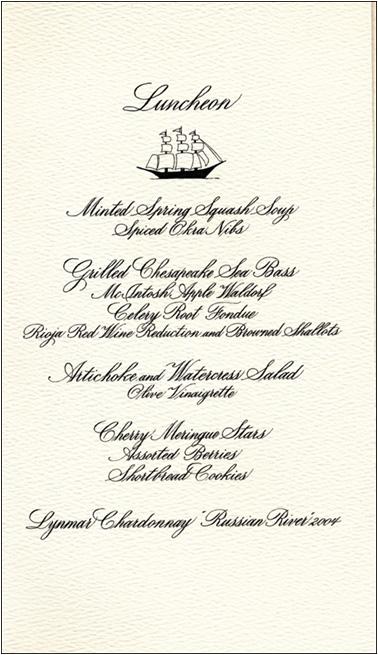 Luncheon
Minted Spring Squash Soup
Spiced Okra Nibs
Grilled Chesapeake Sea Bass
McIntosh Apple Waldorf
Celery Root Fondue
Rioja Red Wine Reduction and Browned Shallots
Artichoke and Watercress Salad
Olive Vinaigrette
Cherry Meringue Stars
Assorted Berries
Shortbread Cookies
Lynmar Chardonnay "Russian River" 2004